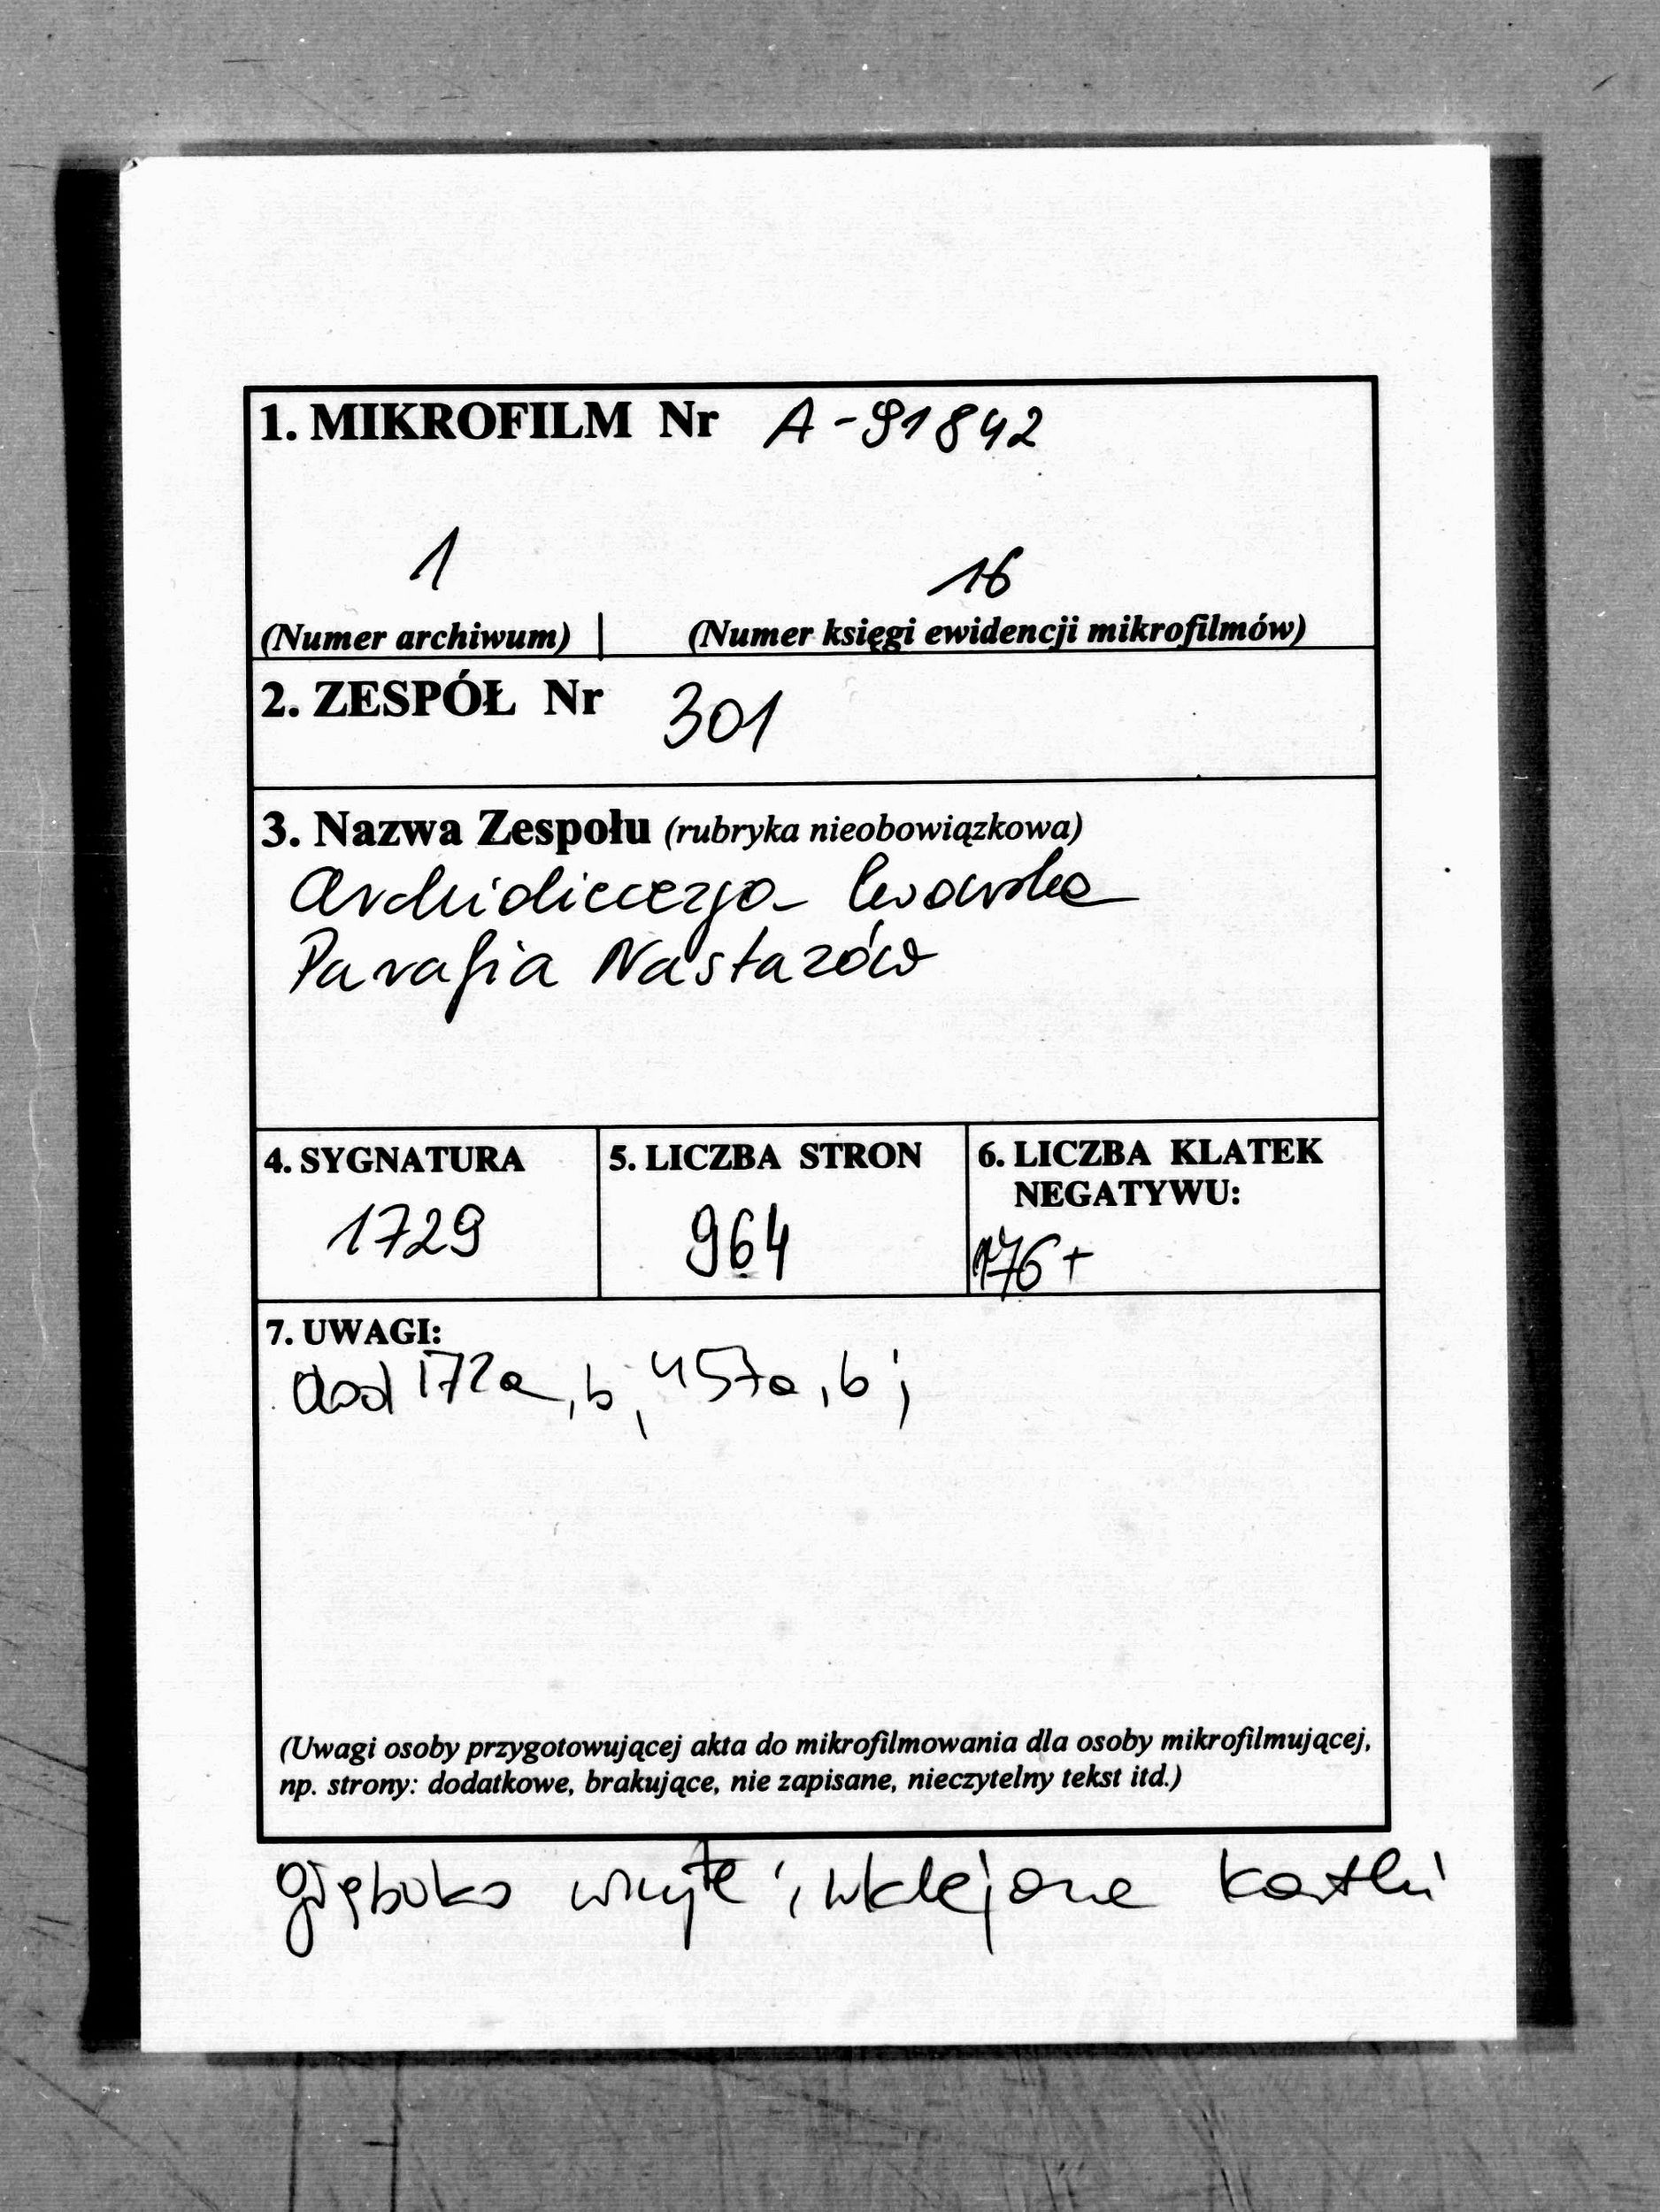 1. MIKROFILM Nr A-91842
1 16
(Numer archiwum) | (Numer księgi ewidencji mikrofilmów)
2. ZESPÓŁ Nr 301
3. Nazwa Zespołu (rubryka nieobowiązkowa)
Archidiecezja lwowska
Parafia Nastazów
4. SYGNATURA 5. LICZBA STRON 6. LICZBA KLATEK
NEGATYWU:
1729 964 176+
7. UWAGI:
dod 172a, b, 457a, b;
(Uwagi osoby przygotowującej akta do mikrofilmowania dla osoby mikrofilmującej,
np. strony: dodatkowe, brakujące, nie zapisane, nieczytelny tekst itd.)
głęboko i wklejone kartki